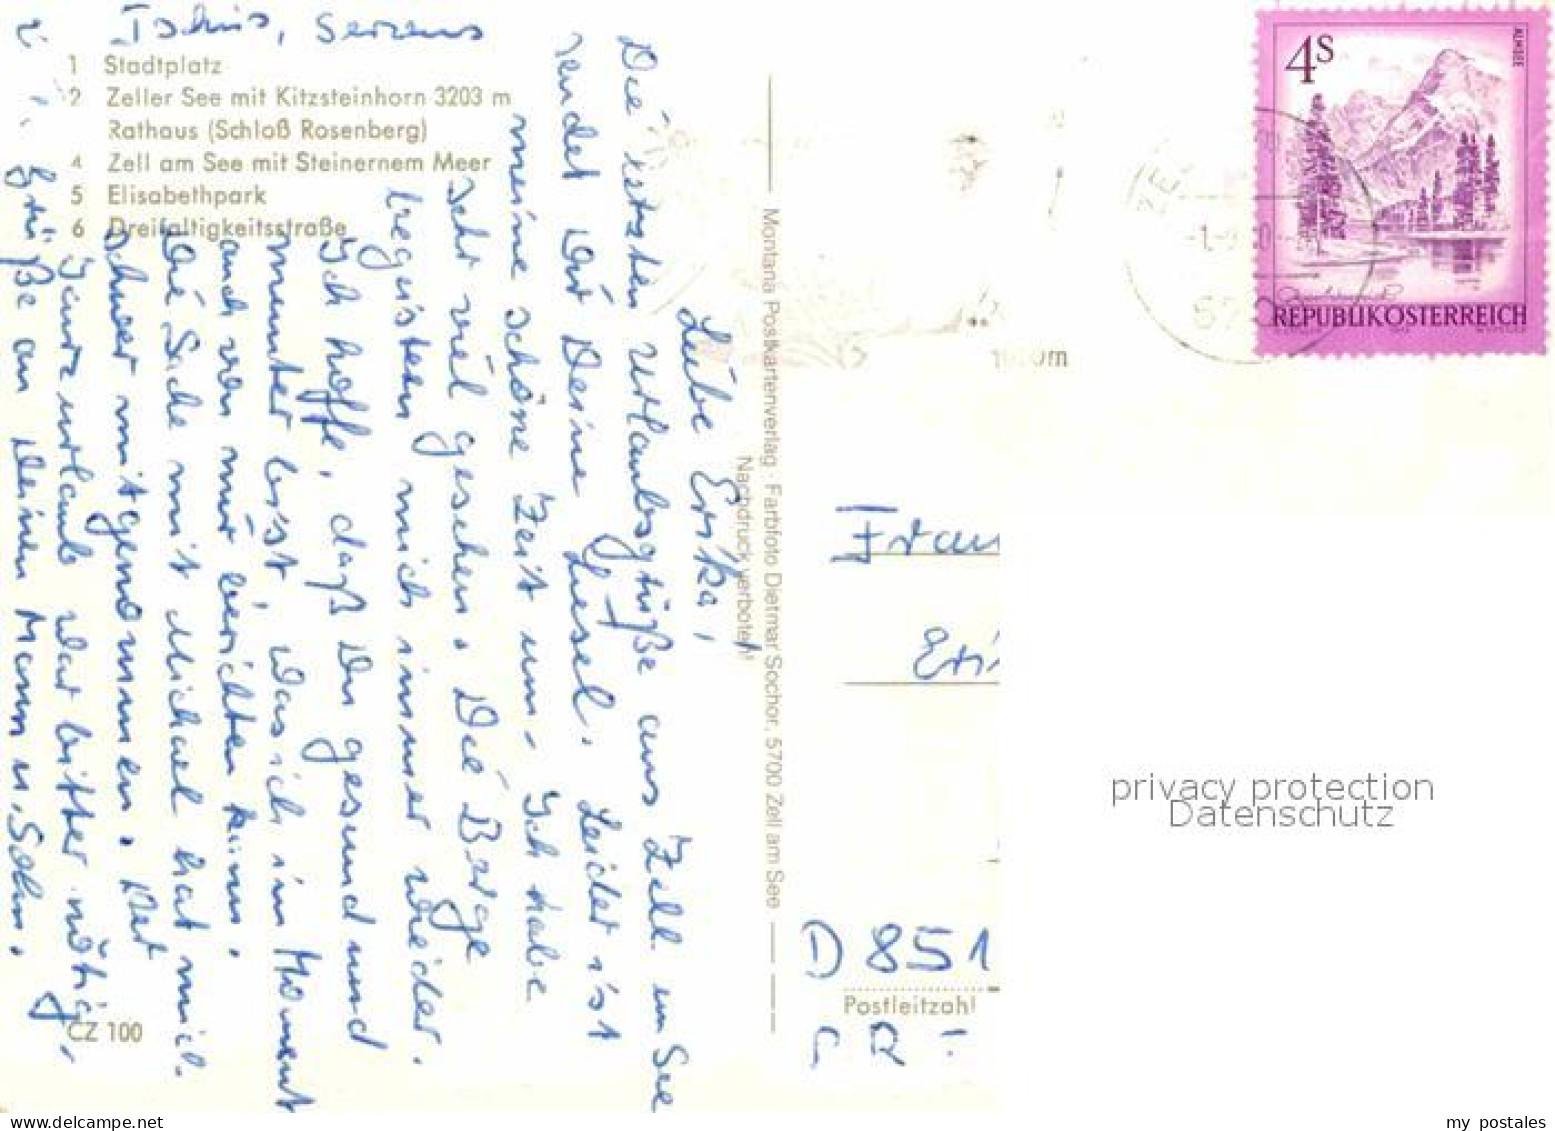 Tschüs, Servus
1 Stadtplatz
2 Zeller See mit Kitzsteinhorn 3203 m
Rathaus (Schloß Rosenberg)
4 Zell am See mit Steinernem Meer
5 Elisabethpark
6 Dreifaltigkeitsstraße
Liebe Erika,
Die letzten Urlaubsgrüße aus Zell am See
sendet Dir Deine Liesel. Leider ist
meine schöne Zeit um. Ich habe
sehr viel gesehen. Die Berge
begeistern mich immer wieder.
Ich hoffe, daß Du gesund und
munter bist, was ich im Moment
auch von mir berichten kann.
Die Sache mit Michael hat mich
schwer mitgenommen. Der
Kurzurlaub war bitter nötig.
Grüße an Deinen Mann u. Sohn.
CZ 100
Montana Postkartenverlag · Farbfoto Dietmar Sochor, 5700 Zell am See
Nachdruck verboten!
4S
ALMSEE
REPUBLIK ÖSTERREICH
Frau
Eri
D 851
Postleitzahl
privacy protection
Datenschutz
my postales
www.delcampe.net